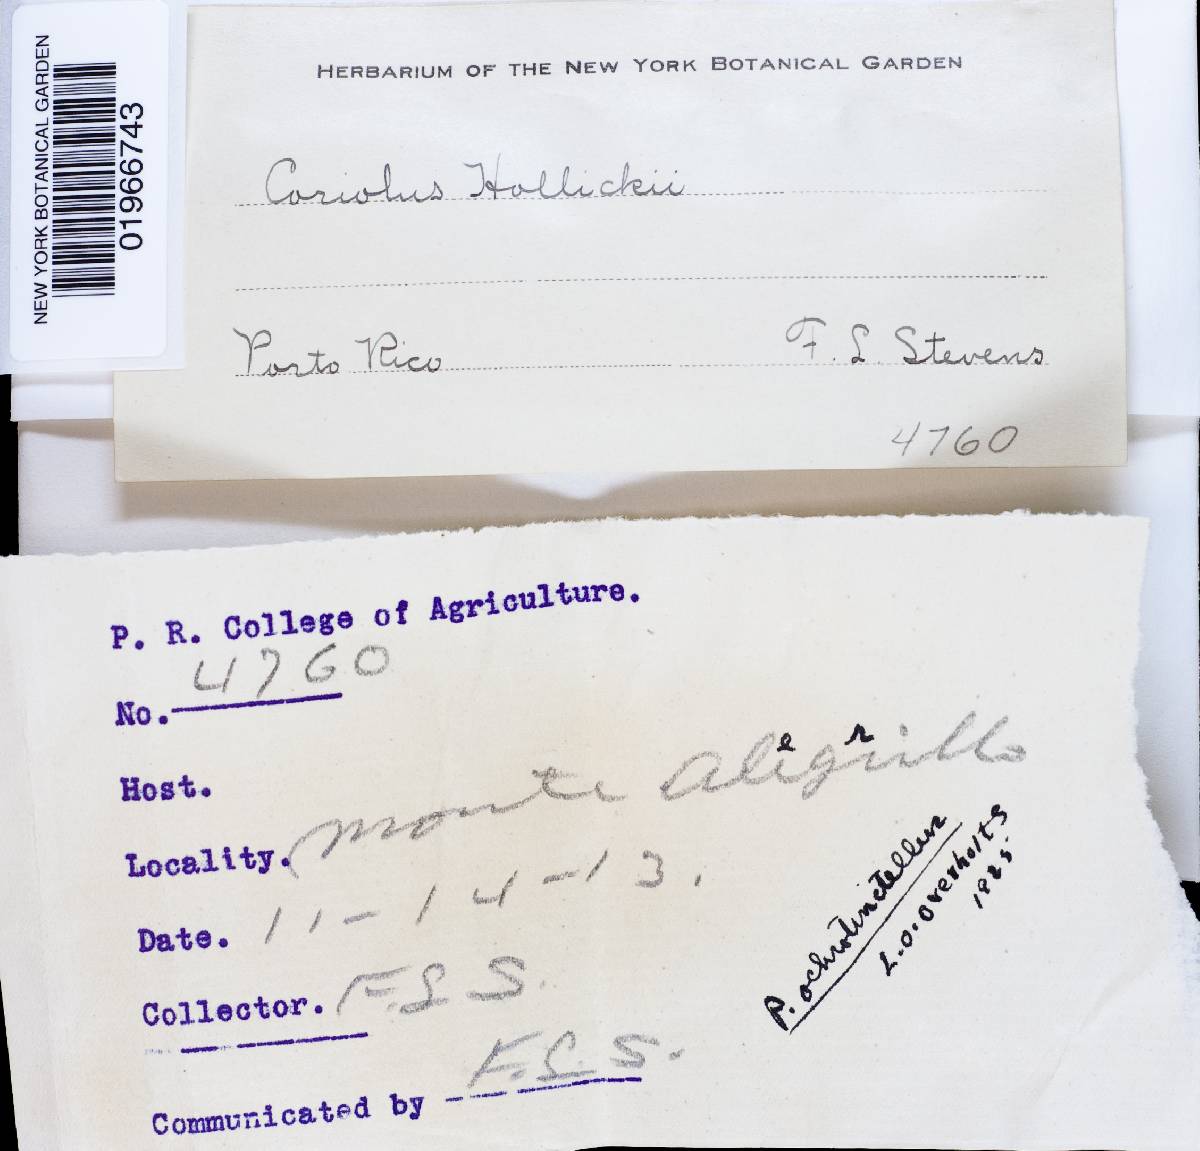 NEW YORK BOTANICAL GARDEN
01966743
HERBARIUM OF THE NEW YORK BOTANICAL GARDEN
Coriolus Hollickii
Porto Rico F. L. Stevens
4760
P. R. College of Agriculture.
No. 4760
Host.
Locality. Monte Alegrillo
Date. 11-14-13.
Collector. F.L S.
Communicated by F.L.S.
P. ochrotinctellus
L.O. Overholts
1925